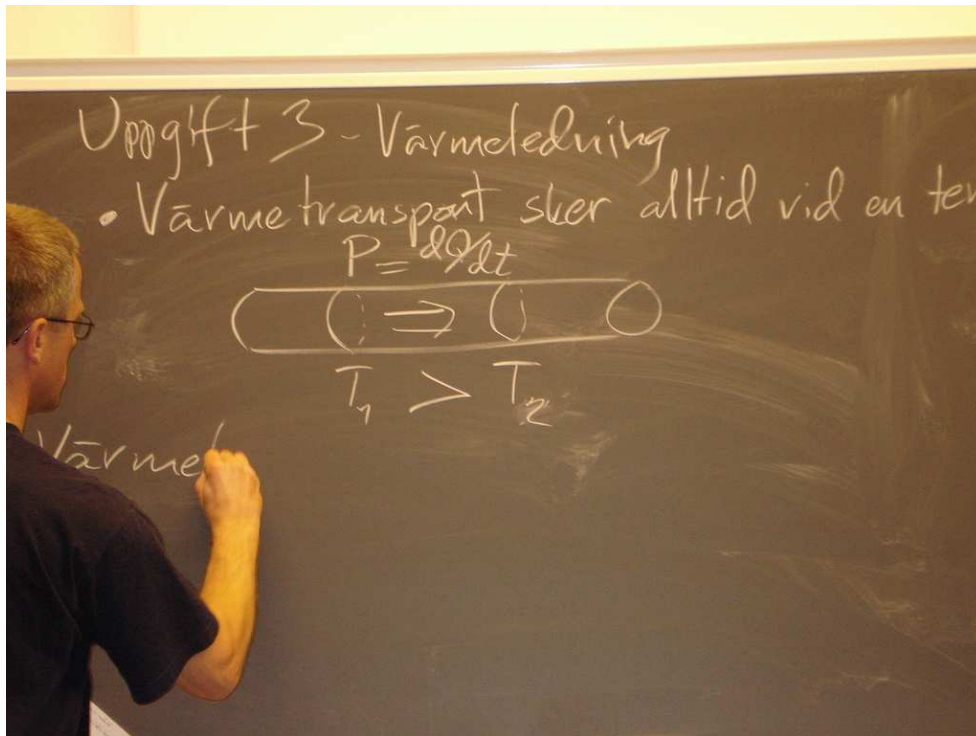 Uppgift 3 - Värmeledning
• Värmetransport sker alltid vid en tem
P = dQ/dt
⇒
T₁ > T₂
Värmet